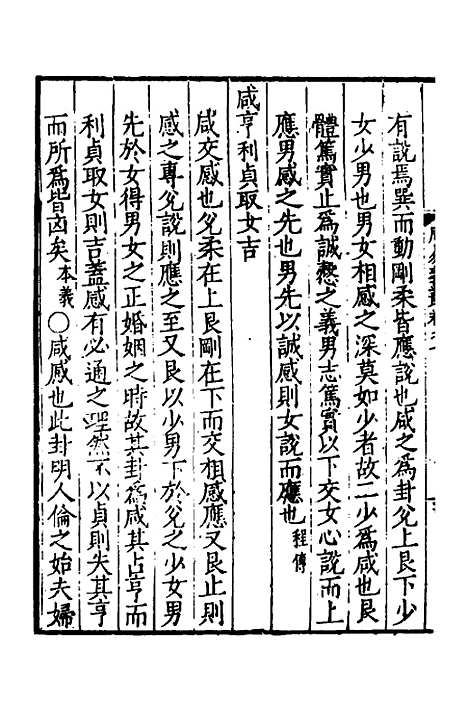 有說焉巽而動剛柔皆應說也咸之為卦兊上艮下少
女少男也男女相感之深莫如少者故二少為咸也艮
體篤實止為誠慤之義男志篤實以下交女心說而上
應男感之先也男先以誠感則女說而應也程傳
咸亨利貞取女吉
咸交感也兊柔在上艮剛在下而交相感應又艮止則
感之專兊說則應之至又艮以少男下於兊之少女男
先於女得男女之正婚姻之時故其卦為咸其占亨而
利貞取女則吉蓋感有必通之理然不以貞則失其亨
而所為皆凶矣本義○咸感也此卦明人倫之始夫婦